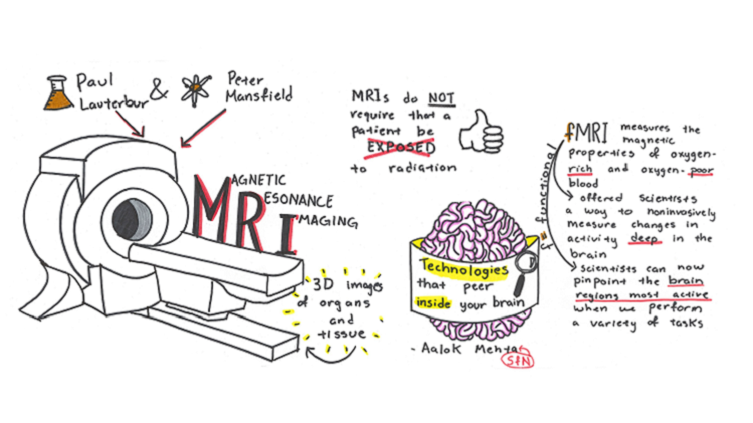 Paul
Lauterbur
&
Peter
Mansfield
MAGNETIC
RESONANCE
IMAGING
3D images
of organs
and
tissue
MRIs do NOT
require that a
patient be
EXPOSED
to radiation
Technologies
that peer
inside your brain
- Aalok Mehta
SfN
f = functional
fMRI measures the
magnetic
properties of oxygen-
rich and oxygen-poor
blood
offered scientists
a way to noninvasively
measure changes in
activity deep in the
brain
scientists can now
pinpoint the brain
regions most active
when we perform
a variety of tasks